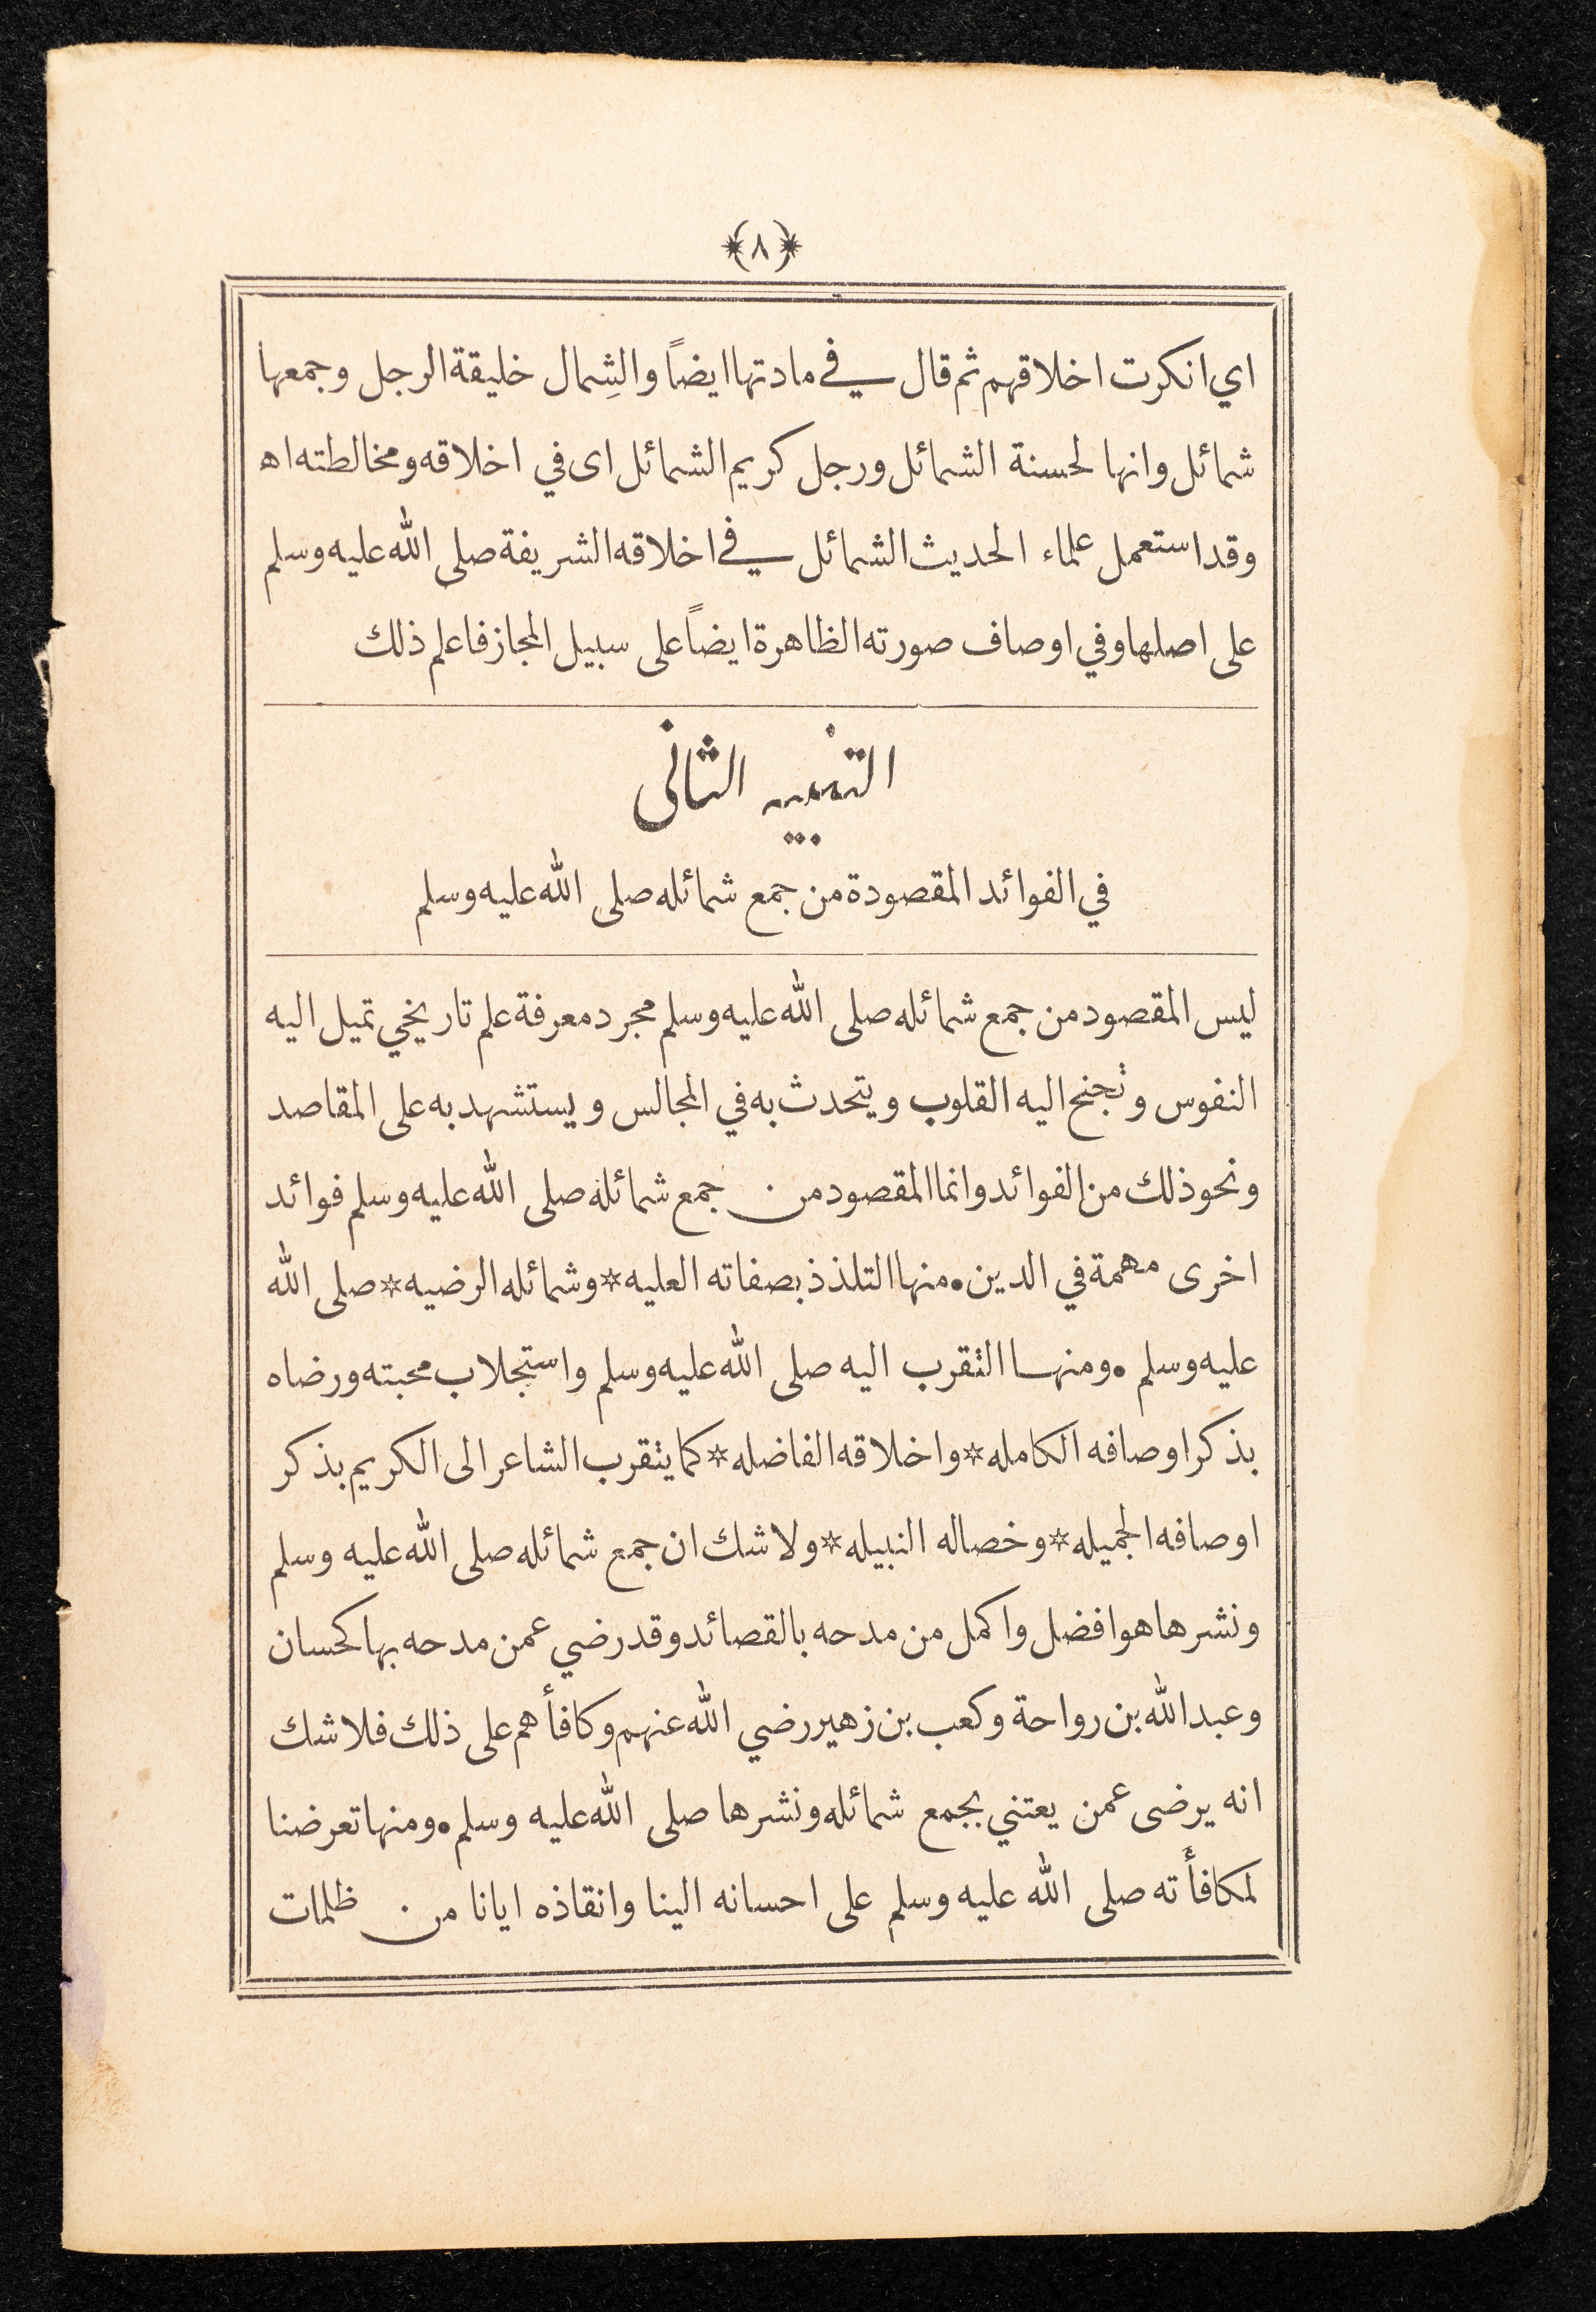 ﴿٨﴾
اي انكرت اخلاقهم ثم قال في مادتها ايضاً والشِمال خليقة الرجل وجمعها
شمائل وانها لحسنة الشمائل ورجل كريم الشمائل اى في اخلاقه ومخالطته اه
وقد استعمل علماء الحديث الشمائل في اخلاقه الشريفة صلى الله عليه وسلم
على اصلها وفي اوصاف صورته الظاهرة ايضاً على سبيل المجاز فاعلم ذلك
التنبيه الثانى
في الفوائد المقصودة من جمع شمائله صلى الله عليه وسلم
ليس المقصود من جمع شمائله صلى الله عليه وسلم مجرد معرفة علم تاريخي تميل اليه
النفوس وتجنح اليه القلوب ويتحدث به في المجالس ويستشهد به على المقاصد
ونحو ذلك من الفوائد وانما المقصود من جمع شمائله صلى الله عليه وسلم فوائد
اخرى مهمة في الدين • منها التلذذ بصفاته العليه * وشمائله الرضيه * صلى الله
عليه وسلم • ومنها التقرب اليه صلى الله عليه وسلم واستجلاب محبته ورضاه
بذكر اوصافه الكامله * واخلاقه الفاضله * كما يتقرب الشاعر الى الكريم بذكر
اوصافه الجميله * وخصاله النبيله * ولا شك ان جمع شمائله صلى الله عليه وسلم
ونشرها هو افضل واكمل من مدحه بالقصائد وقد رضي عمن مدحه بها كحسان
وعبد الله بن رواحة وكعب بن زهير رضي الله عنهم وكافأهم على ذلك فلا شك
انه يرضى عمن يعتني بجمع شمائله ونشرها صلى الله عليه وسلم • ومنها تعرضنا
لمكافأته صلى الله عليه وسلم على احسانه الينا وانقاذه ايانا من ظلمات